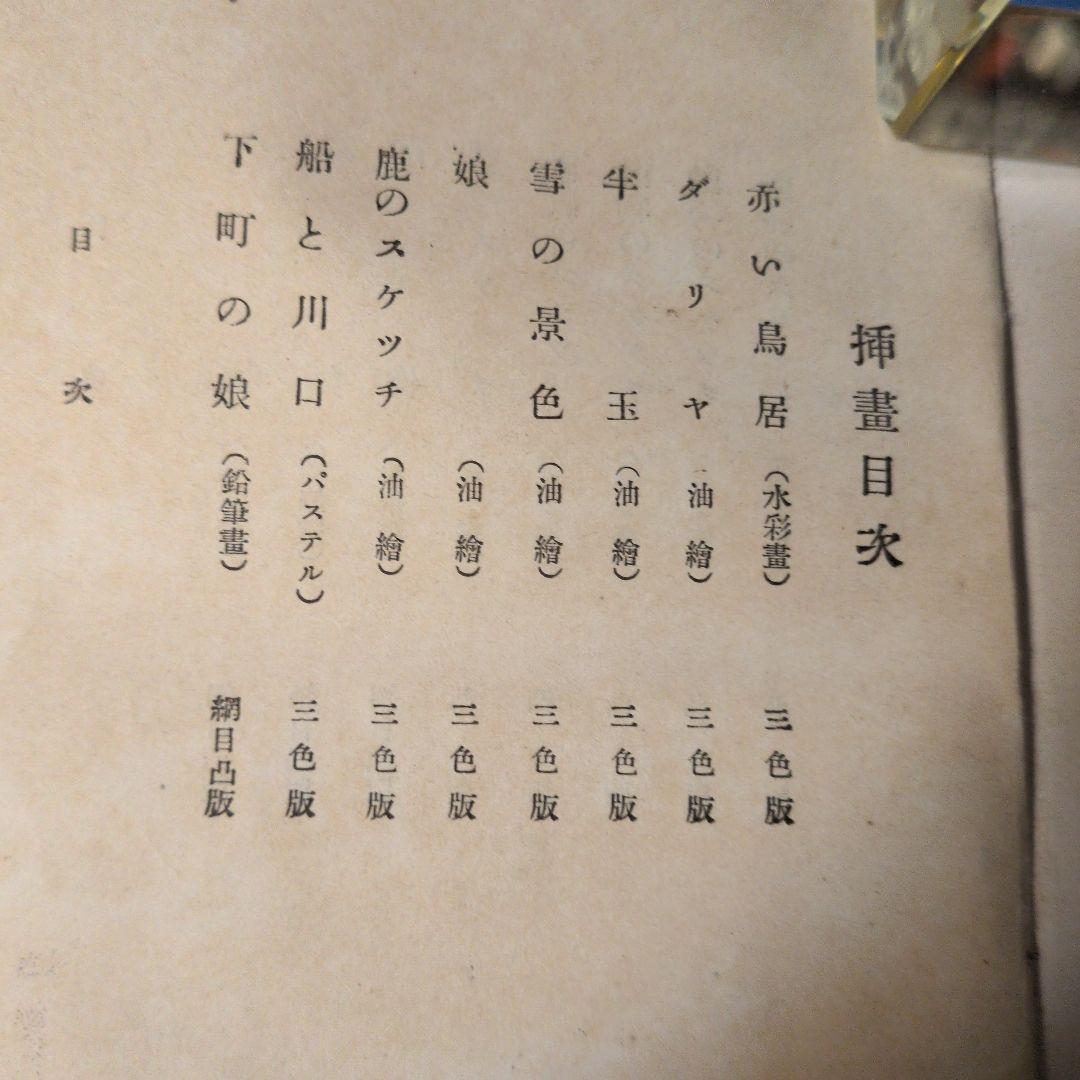 挿畫目次
赤い鳥居（水彩畫）三色版
ダリヤ 油繪）三色版
半玉（油繪）三色版
雪の景色（油繪）三色版
娘（油繪）三色版
鹿のスケツチ（油繪）三色版
船と川口（パステル）三色版
下町の娘（鉛筆畫）網目凸版
目次